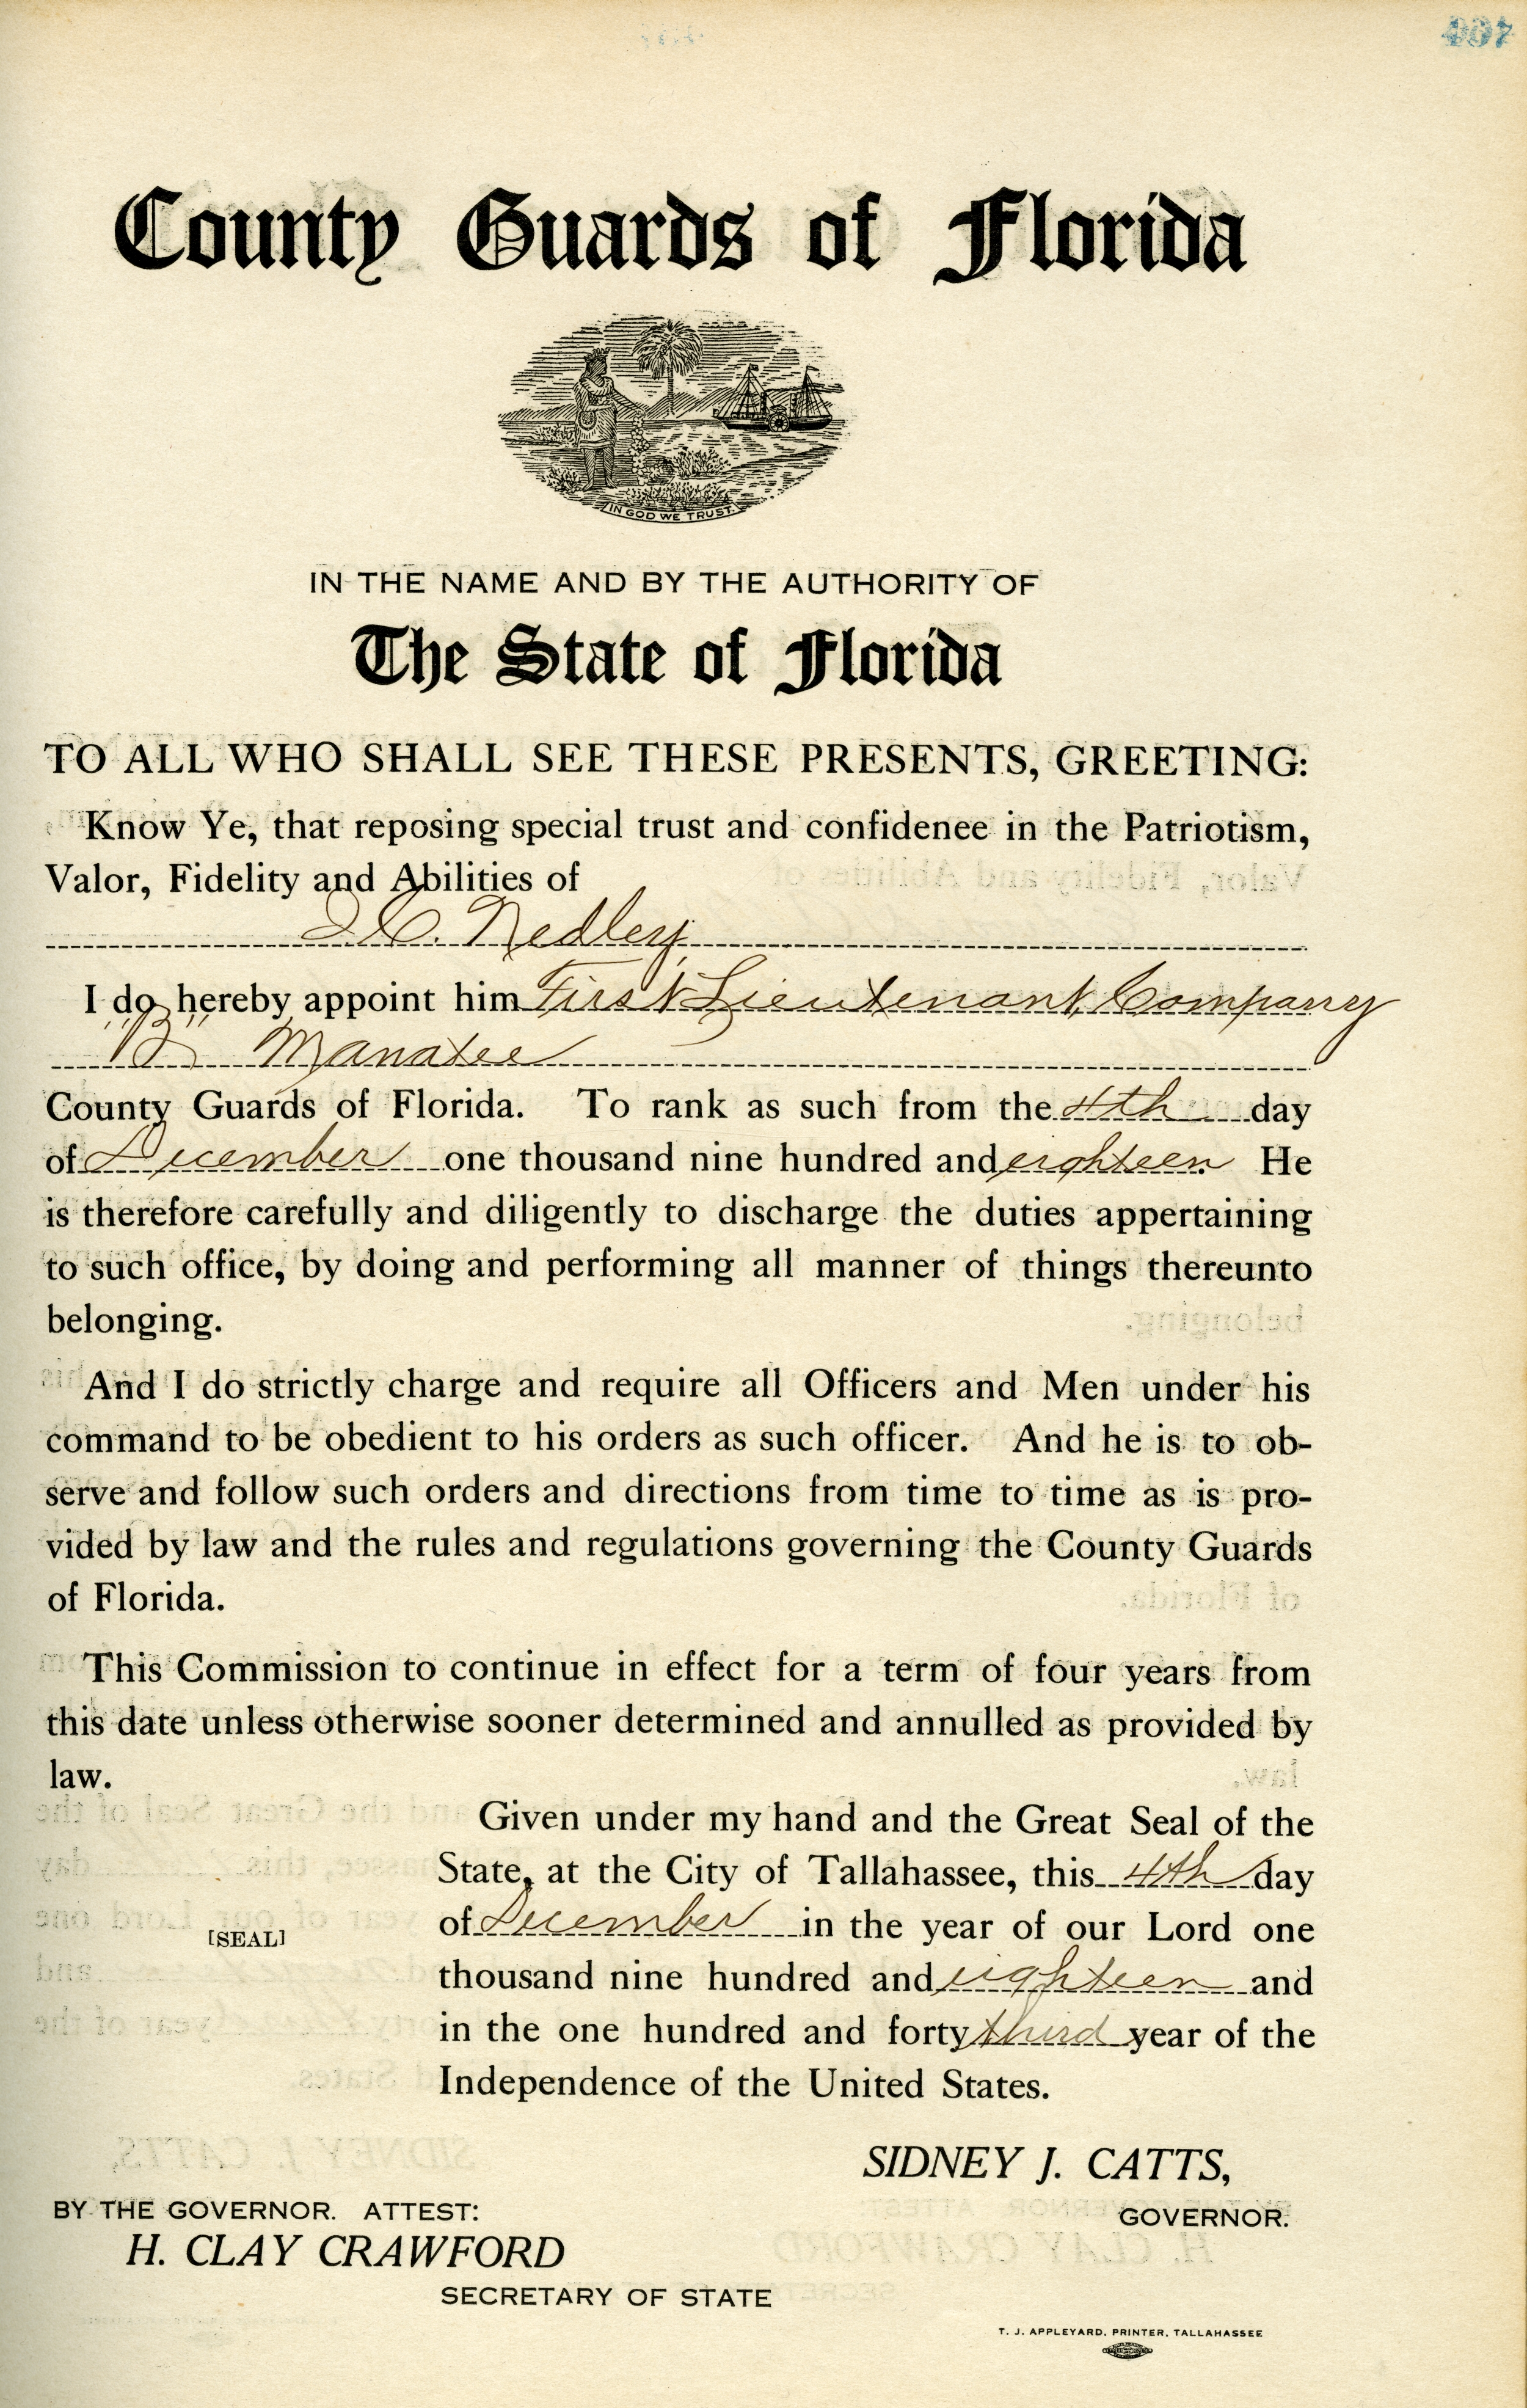 County Guards of Florida
IN GOD WE TRUST.
IN THE NAME AND BY THE AUTHORITY OF
The State of Florida
TO ALL WHO SHALL SEE THESE PRESENTS, GREETING:
Know Ye, that reposing special trust and confidenee in the Patriotism,
Valor, Fidelity and Abilities of
C. Nedley,
I do hereby appoint him First Lieutenant, Company
"B" Manatee
County Guards of Florida. To rank as such from the 4th day
of December one thousand nine hundred and eighteen. He
is therefore carefully and diligently to discharge the duties appertaining
to such office, by doing and performing all manner of things thereunto
belonging.
And I do strictly charge and require all Officers and Men under his
command to be obedient to his orders as such officer. And he is to ob-
serve and follow such orders and directions from time to time as is pro-
vided by law and the rules and regulations governing the County Guards
of Florida.
This Commission to continue in effect for a term of four years from
this date unless otherwise sooner determined and annulled as provided by
law.
Given under my hand and the Great Seal of the
State, at the City of Tallahassee, this 4th day
of December in the year of our Lord one
[SEAL]
thousand nine hundred and eighteen and
in the one hundred and forty third year of the
Independence of the United States.
SIDNEY J. CATTS,
GOVERNOR.
BY THE GOVERNOR. ATTEST:
H. CLAY CRAWFORD
SECRETARY OF STATE
T. J. APPLEYARD, PRINTER, TALLAHASSEE